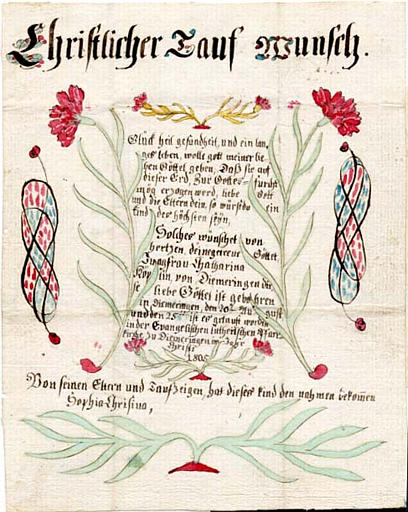 Christlicher Tauf Wunsch.
Glück heil gesundheit, und ein lan,
ges leben, wolle gott meiner lie
ben Göttel geben, Daß sie auf
dieser Erd, Zur Gottes furcht
mög erzogen werd, liebe Gott
und die Eltern dein, so würstdu ein
kind des höchsten seÿn,
Solches wünschet von
hertzen, deine getreue Göttel,
Jungfrau Chatharina
sin, von Diemeringen die
se liebe Göttel ist gebohren
in Diemeringen, den 20 August
und den 25 ist es getauft worden
in der Evangelischen lutherischen Pfarr
kirche zu Diemeringen im Jahr
Christi
1805
Von seinen Eltern und Taufzeigen, hat dieses kind den nahmen bekomen
Sophia Chrisina,